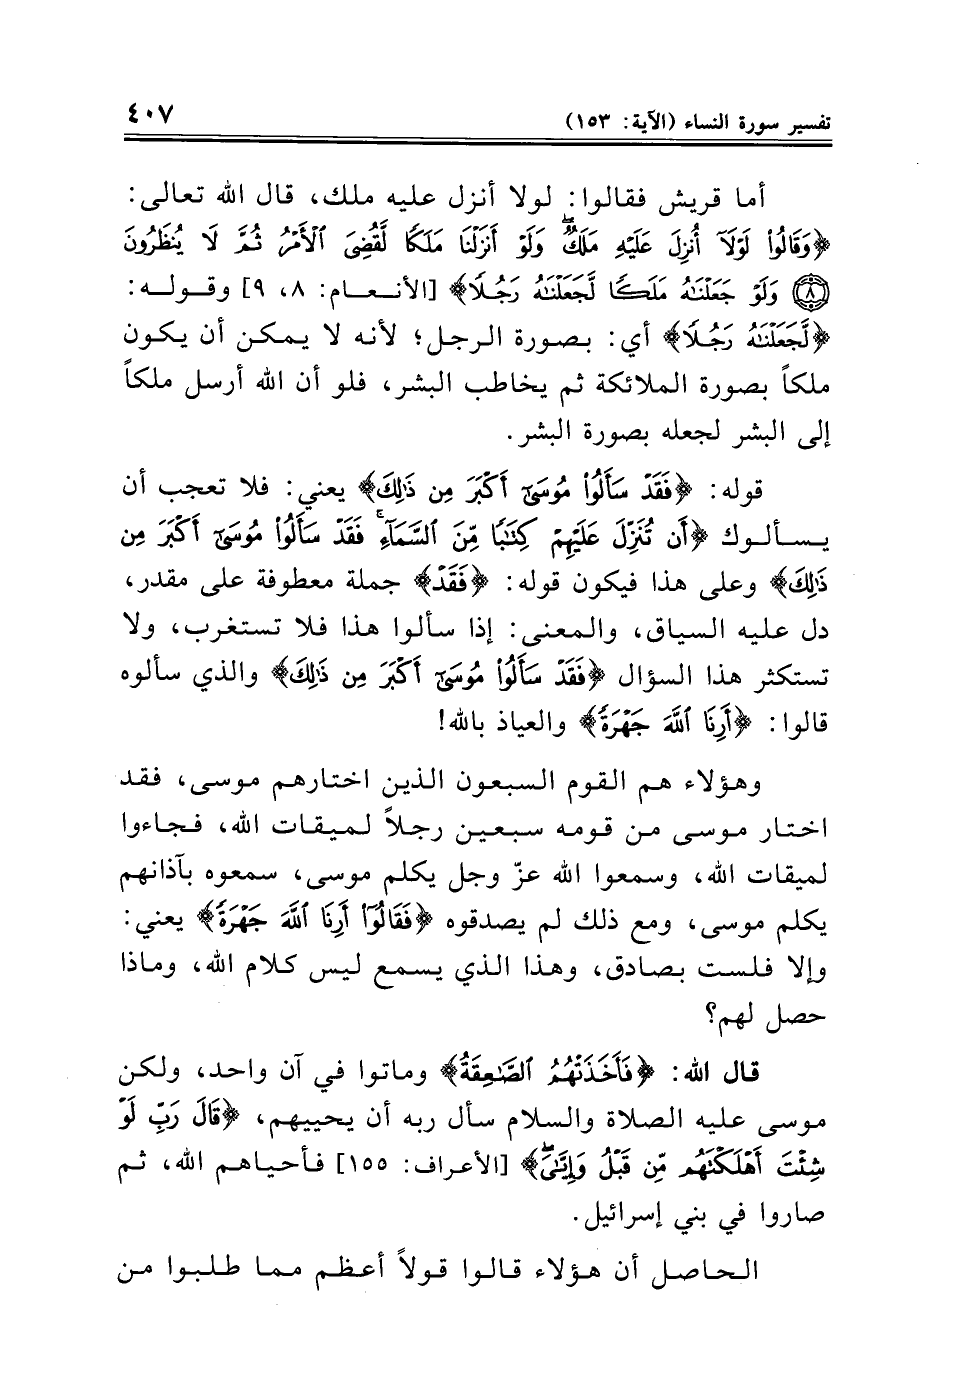 تفسير سورة النساء (الآية: ١٥٣) ٤٠٧
أما قريش فقالوا: لولا أنزل عليه ملك، قال الله تعالى:
﴿وَقَالُوا۟ لَوْلَآ أُنزِلَ عَلَيْهِ مَلَكٌۖ وَلَوْ أَنزَلْنَا مَلَكًا لَّقُضِىَ ٱلْأَمْرُ ثُمَّ لَا يُنظَرُونَ
٨ وَلَوْ جَعَلْنَٰهُ مَلَكًا لَّجَعَلْنَٰهُ رَجُلًا﴾ [الأنعام: ٨، ٩] وقوله:
﴿لَّجَعَلْنَٰهُ رَجُلًا﴾ أي: بصورة الرجل؛ لأنه لا يمكن أن يكون
ملكاً بصورة الملائكة ثم يخاطب البشر، فلو أن الله أرسل ملكاً
إلى البشر لجعله بصورة البشر.
قوله: ﴿فَقَدْ سَأَلُوا۟ مُوسَىٰٓ أَكْبَرَ مِن ذَٰلِكَ﴾ يعني: فلا تعجب أن
يسألوك ﴿أَن تُنَزِّلَ عَلَيْهِمْ كِتَٰبًا مِّنَ ٱلسَّمَآءِۚ فَقَدْ سَأَلُوا۟ مُوسَىٰٓ أَكْبَرَ مِن
ذَٰلِكَ﴾ وعلى هذا فيكون قوله: ﴿فَقَدْ﴾ جملة معطوفة على مقدر،
دل عليه السياق، والمعنى: إذا سألوا هذا فلا تستغرب، ولا
تستكثر هذا السؤال ﴿فَقَدْ سَأَلُوا۟ مُوسَىٰٓ أَكْبَرَ مِن ذَٰلِكَ﴾ والذي سألوه
قالوا: ﴿أَرِنَا ٱللَّهَ جَهْرَةً﴾ والعياذ بالله!
وهؤلاء هم القوم السبعون الذين اختارهم موسى، فقد
اختار موسى من قومه سبعين رجلاً لميقات الله، فجاءوا
لميقات الله، وسمعوا الله عزّ وجل يكلم موسى، سمعوه بآذانهم
يكلم موسى، ومع ذلك لم يصدقوه ﴿فَقَالُوٓا۟ أَرِنَا ٱللَّهَ جَهْرَةً﴾ يعني:
وإلا فلست بصادق، وهذا الذي يسمع ليس كلام الله، وماذا
حصل لهم؟
قال الله: ﴿فَأَخَذَتْهُمُ ٱلصَّٰعِقَةُ﴾ وماتوا في آن واحد، ولكن
موسى عليه الصلاة والسلام سأل ربه أن يحييهم، ﴿قَالَ رَبِّ لَوْ
شِئْتَ أَهْلَكْتَهُم مِّن قَبْلُ وَإِيَّٰىَۖ﴾ [الأعراف: ١٥٥] فأحياهم الله، ثم
صاروا في بني إسرائيل.
الحاصل أن هؤلاء قالوا قولاً أعظم مما طلبوا من